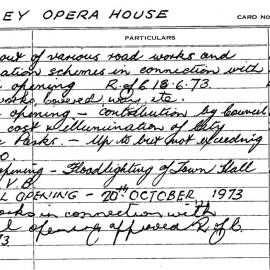 EY OPERA HOUSE
CARD NO
PARTICULARS
out of various road works and
ation schemes in connection with
opening R. of C 18.6.73.
works, covered way, etc.
- opening - contribution by Council
cost of illumination of City
Parks. - Up to but not exceeding
0.
opening - Floodlighting of Town Hall
V.B.
L OPENING - 20TH OCTOBER, 1973
orks in connection with
l opening approved R. of C.
73